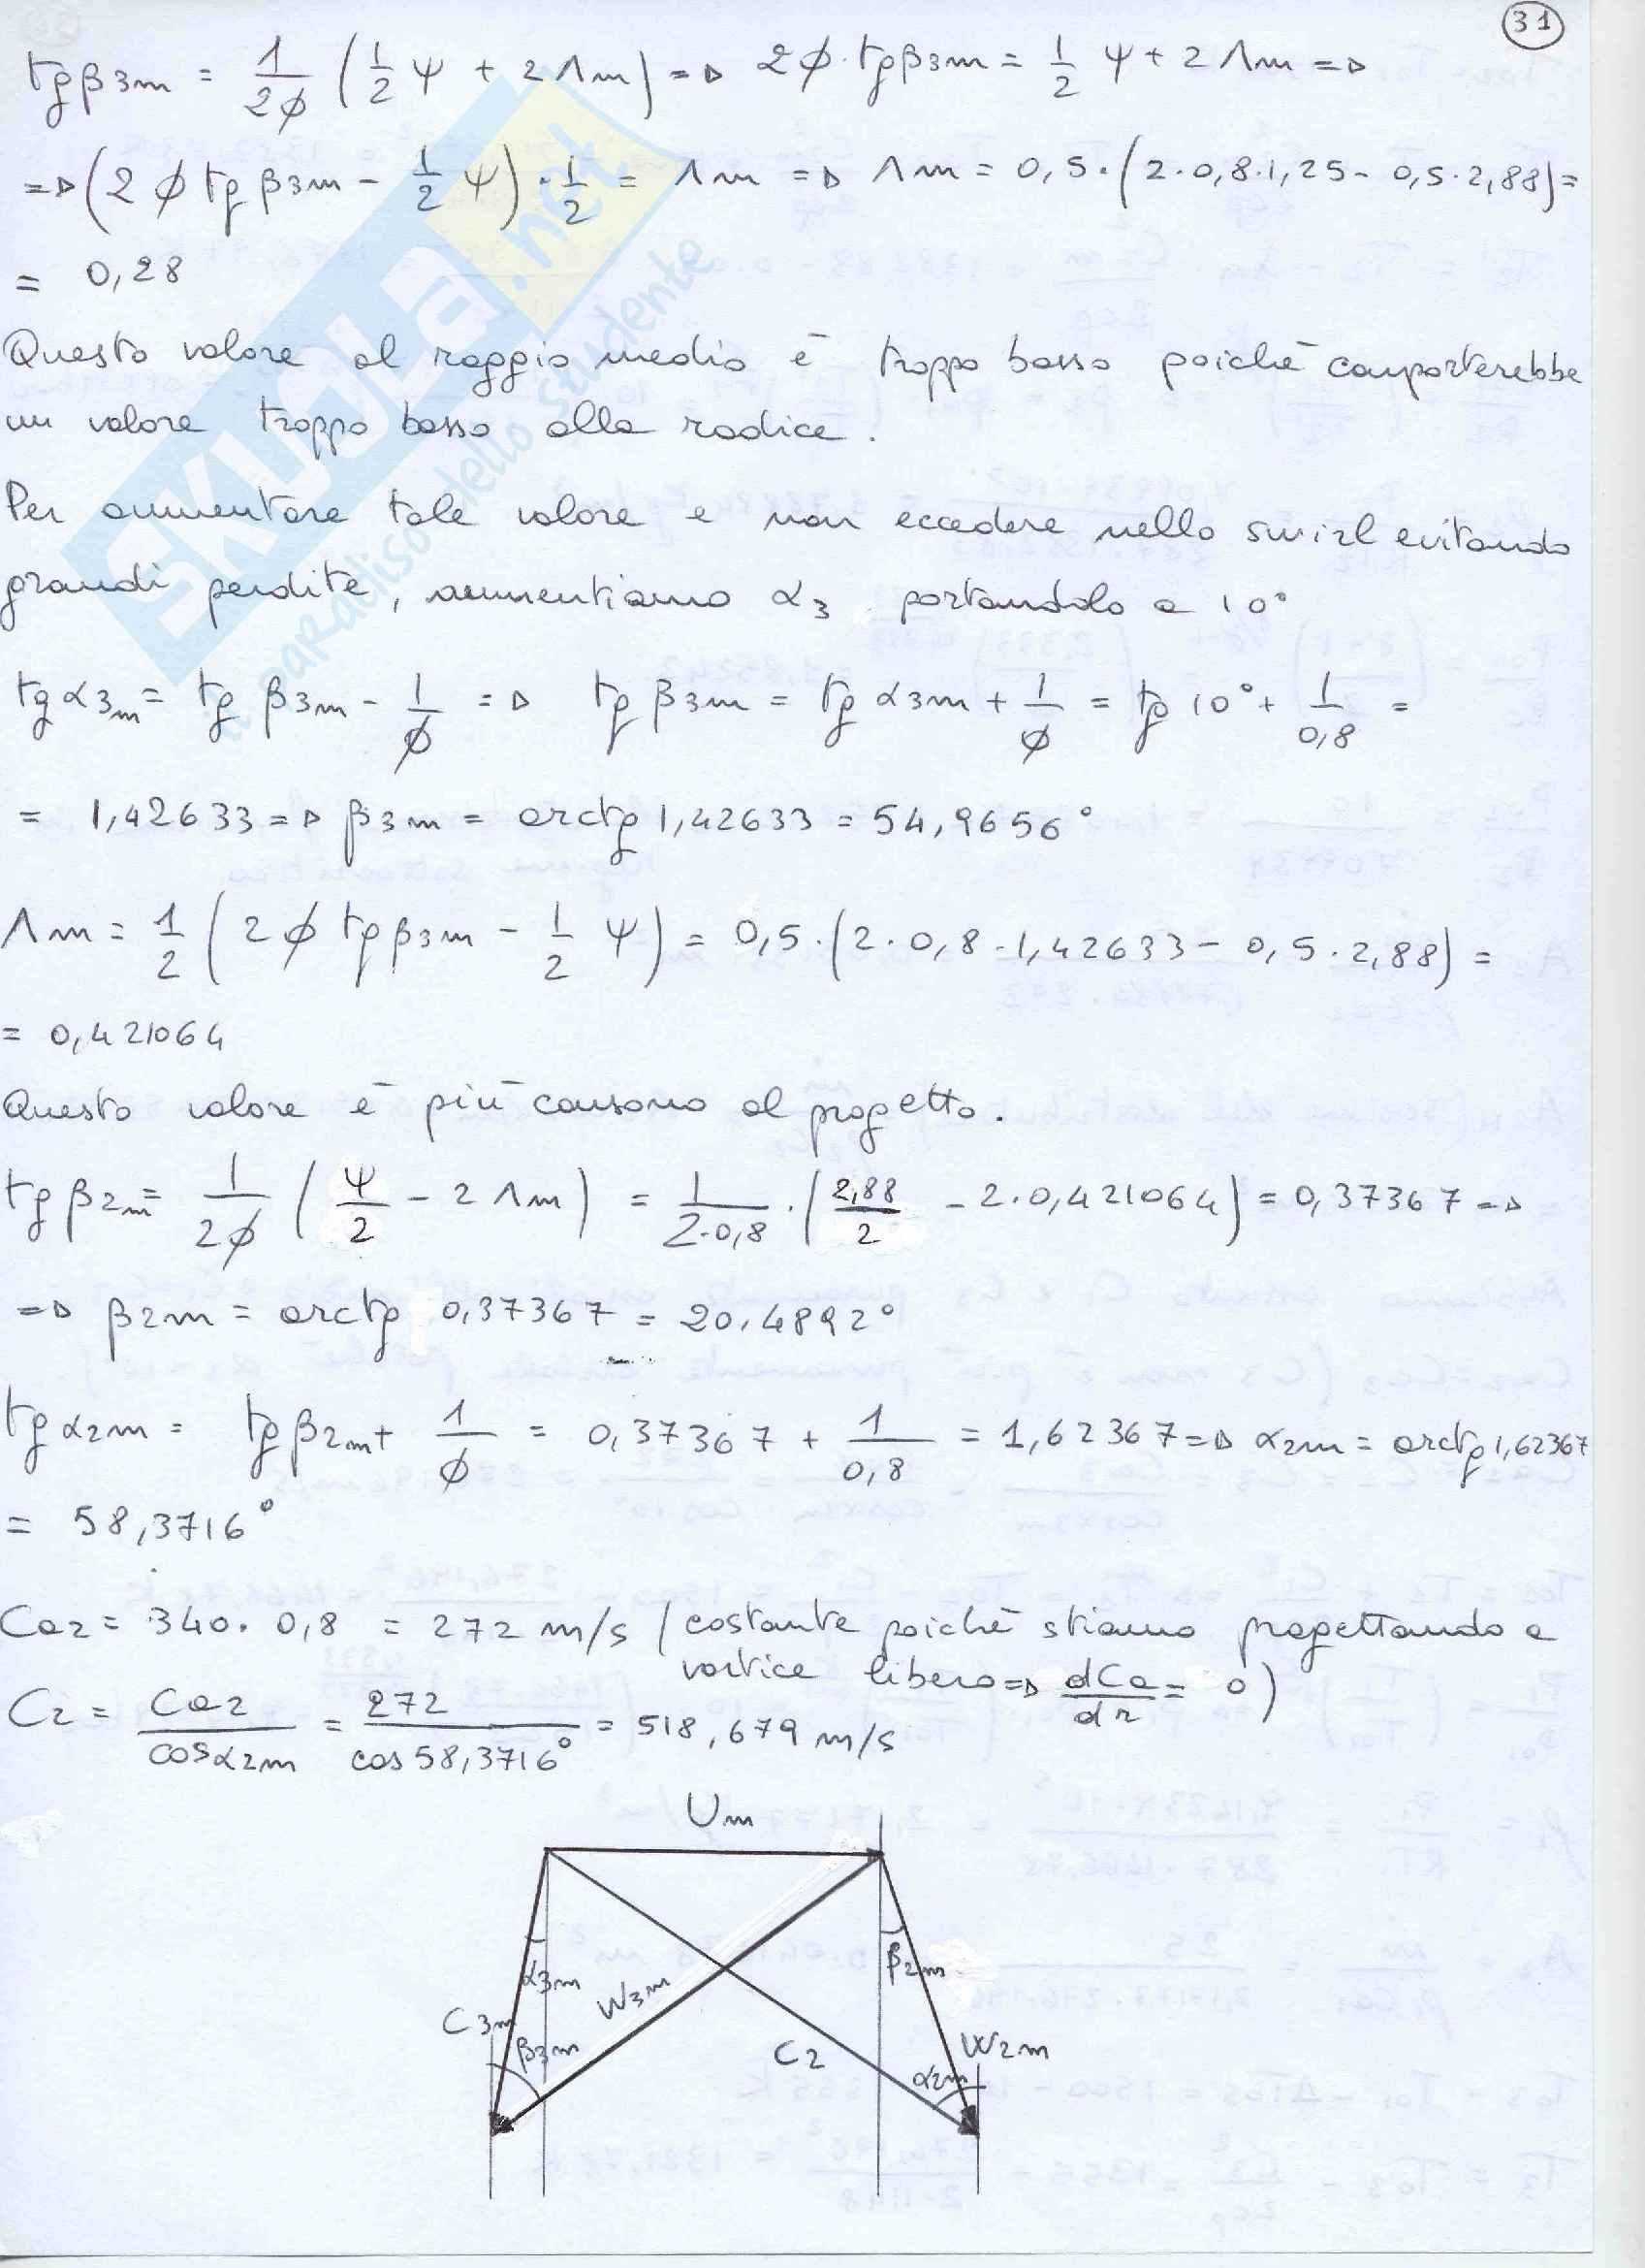 31
tgβ3m = 1/2ϕ (1/2 ψ + 2Λm) => 2ϕ·tgβ3m = 1/2 ψ + 2Λm =>
=> (2ϕ tgβ3m - 1/2 ψ)·1/2 = Λm => Λm = 0,5·(2·0,8·1,25 - 0,5·2,88) =
= 0,28
Questo valore al raggio medio è troppo basso poichè comporterebbe
un valore troppo basso alla radice.
Per aumentare tale valore e non eccedere nello swirl evitando
grandi perdite, aumentiamo α3 portandolo a 10°
tgα3m = tgβ3m - 1/ϕ => tgβ3m = tgα3m + 1/ϕ = tg10° + 1/0,8 =
= 1,42633 => β3m = arctg 1,42633 = 54,9656°
Λm = 1/2 (2ϕ tgβ3m - 1/2 ψ) = 0,5·(2·0,8·1,42633 - 0,5·2,88) =
= 0,421064
Questo valore è più consono al progetto.
tgβ2m = 1/2ϕ (ψ/2 - 2Λm) = 1/2·0,8 · (2,88/2 - 2·0,421064) = 0,37367 =>
=> β2m = arctg 0,37367 = 20,4892°
tgα2m = tgβ2m + 1/ϕ = 0,37367 + 1/0,8 = 1,62367 => α2m = arctg 1,62367
= 58,3716°
Ca2 = 340·0,8 = 272 m/s (costante poichè stiamo progettando a
vortice libero => dCa/dr = 0)
C2 = Ca2/cosα2m = 272/cos58,3716° = 518,679 m/s
Um
α3m
W3m
β2m
C3m
β3m
C2
W2m
α2m
SKUOLA.net
il paradiso dello studente